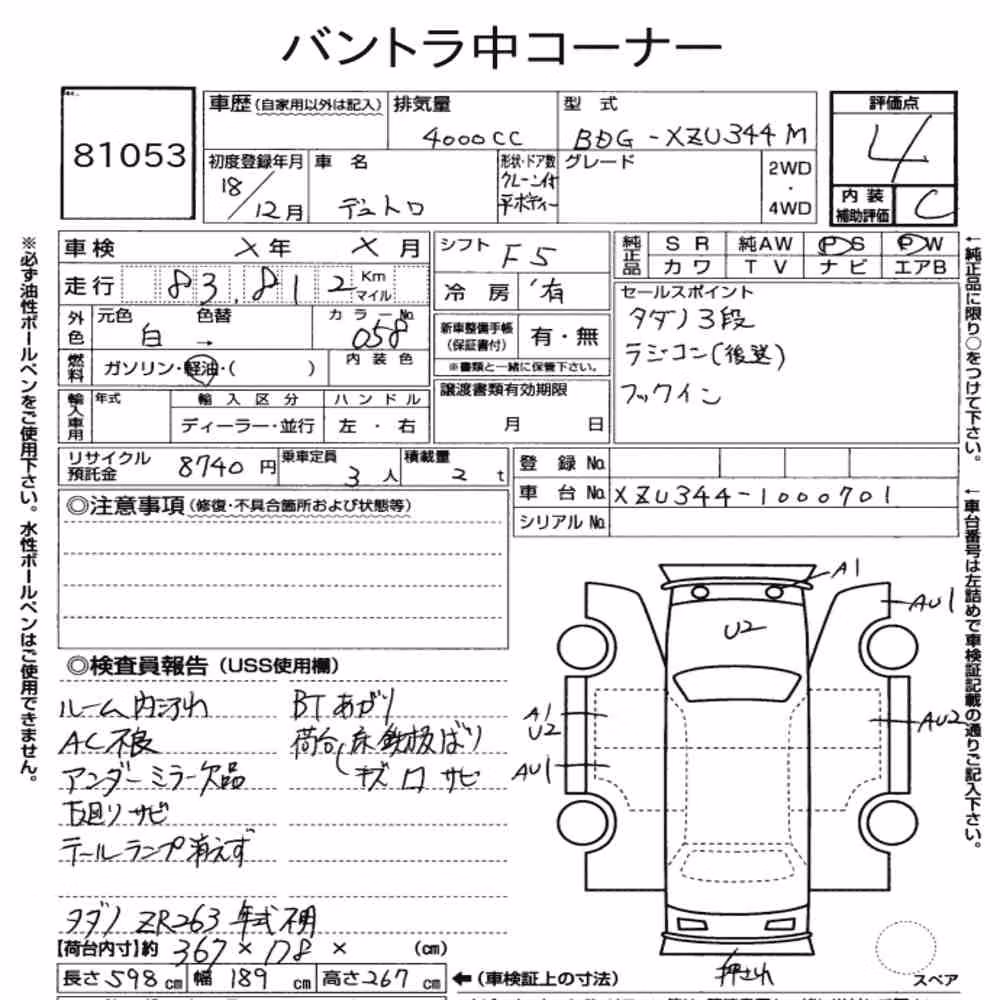 バントラ中コーナー
81053
車歴(自家用以外は記入)
排気量 4000CC
型式 BDG-XZU344M
評価点 4
初度登録年月 18/12月
車名 デュトロ
形状・ドア数 クレーン付 平ボディー
グレード
2WD・4WD
内装補助評価 C
車検 X年 X月
シフト F5
純正品 SR 純AW PS PW
カワ TV ナビ エアB
走行 83,812 Km マイル
冷房 有
セールスポイント
タダノ3段
ラジコン(後送)
フックイン
外色 元色 白 → 色替 カラーNo. 058
新車整備手帳(保証書付) 有・無
※書類と一緒に保管下さい。
燃料 ガソリン・軽油・( ) 内装色
譲渡書類有効期限
月 日
輸入車用 年式 輸入区分 ハンドル
ディーラー・並行 左・右
リサイクル預託金 8740円 乗車定員 3人 積載量 2t
登録No.
車台No. XZU344-1000701
シリアルNo.
◎注意事項(修復・不具合箇所および状態等)
◎検査員報告(USS使用欄)
ルーム内汚れ BTあがり
AC不良 荷台床鉄板ばり
アンダーミラー欠品 キズ 凹 サビ
下廻リサビ
テールランプ消えず
タダノ ZR263 年式不明
【荷台内寸】約 367×178× (cm)
長さ598cm 幅189cm 高さ267cm ←(車検証上の寸法)
A1
AU1
U2
A1
U2
AU2
AU1
押され
スペア
※必ず油性ボールペンをご使用下さい。水性ボールペンはご使用できません。
←純正品に限り○をつけて下さい。
←車台番号は左詰めで車検証記載の通りご記入下さい。